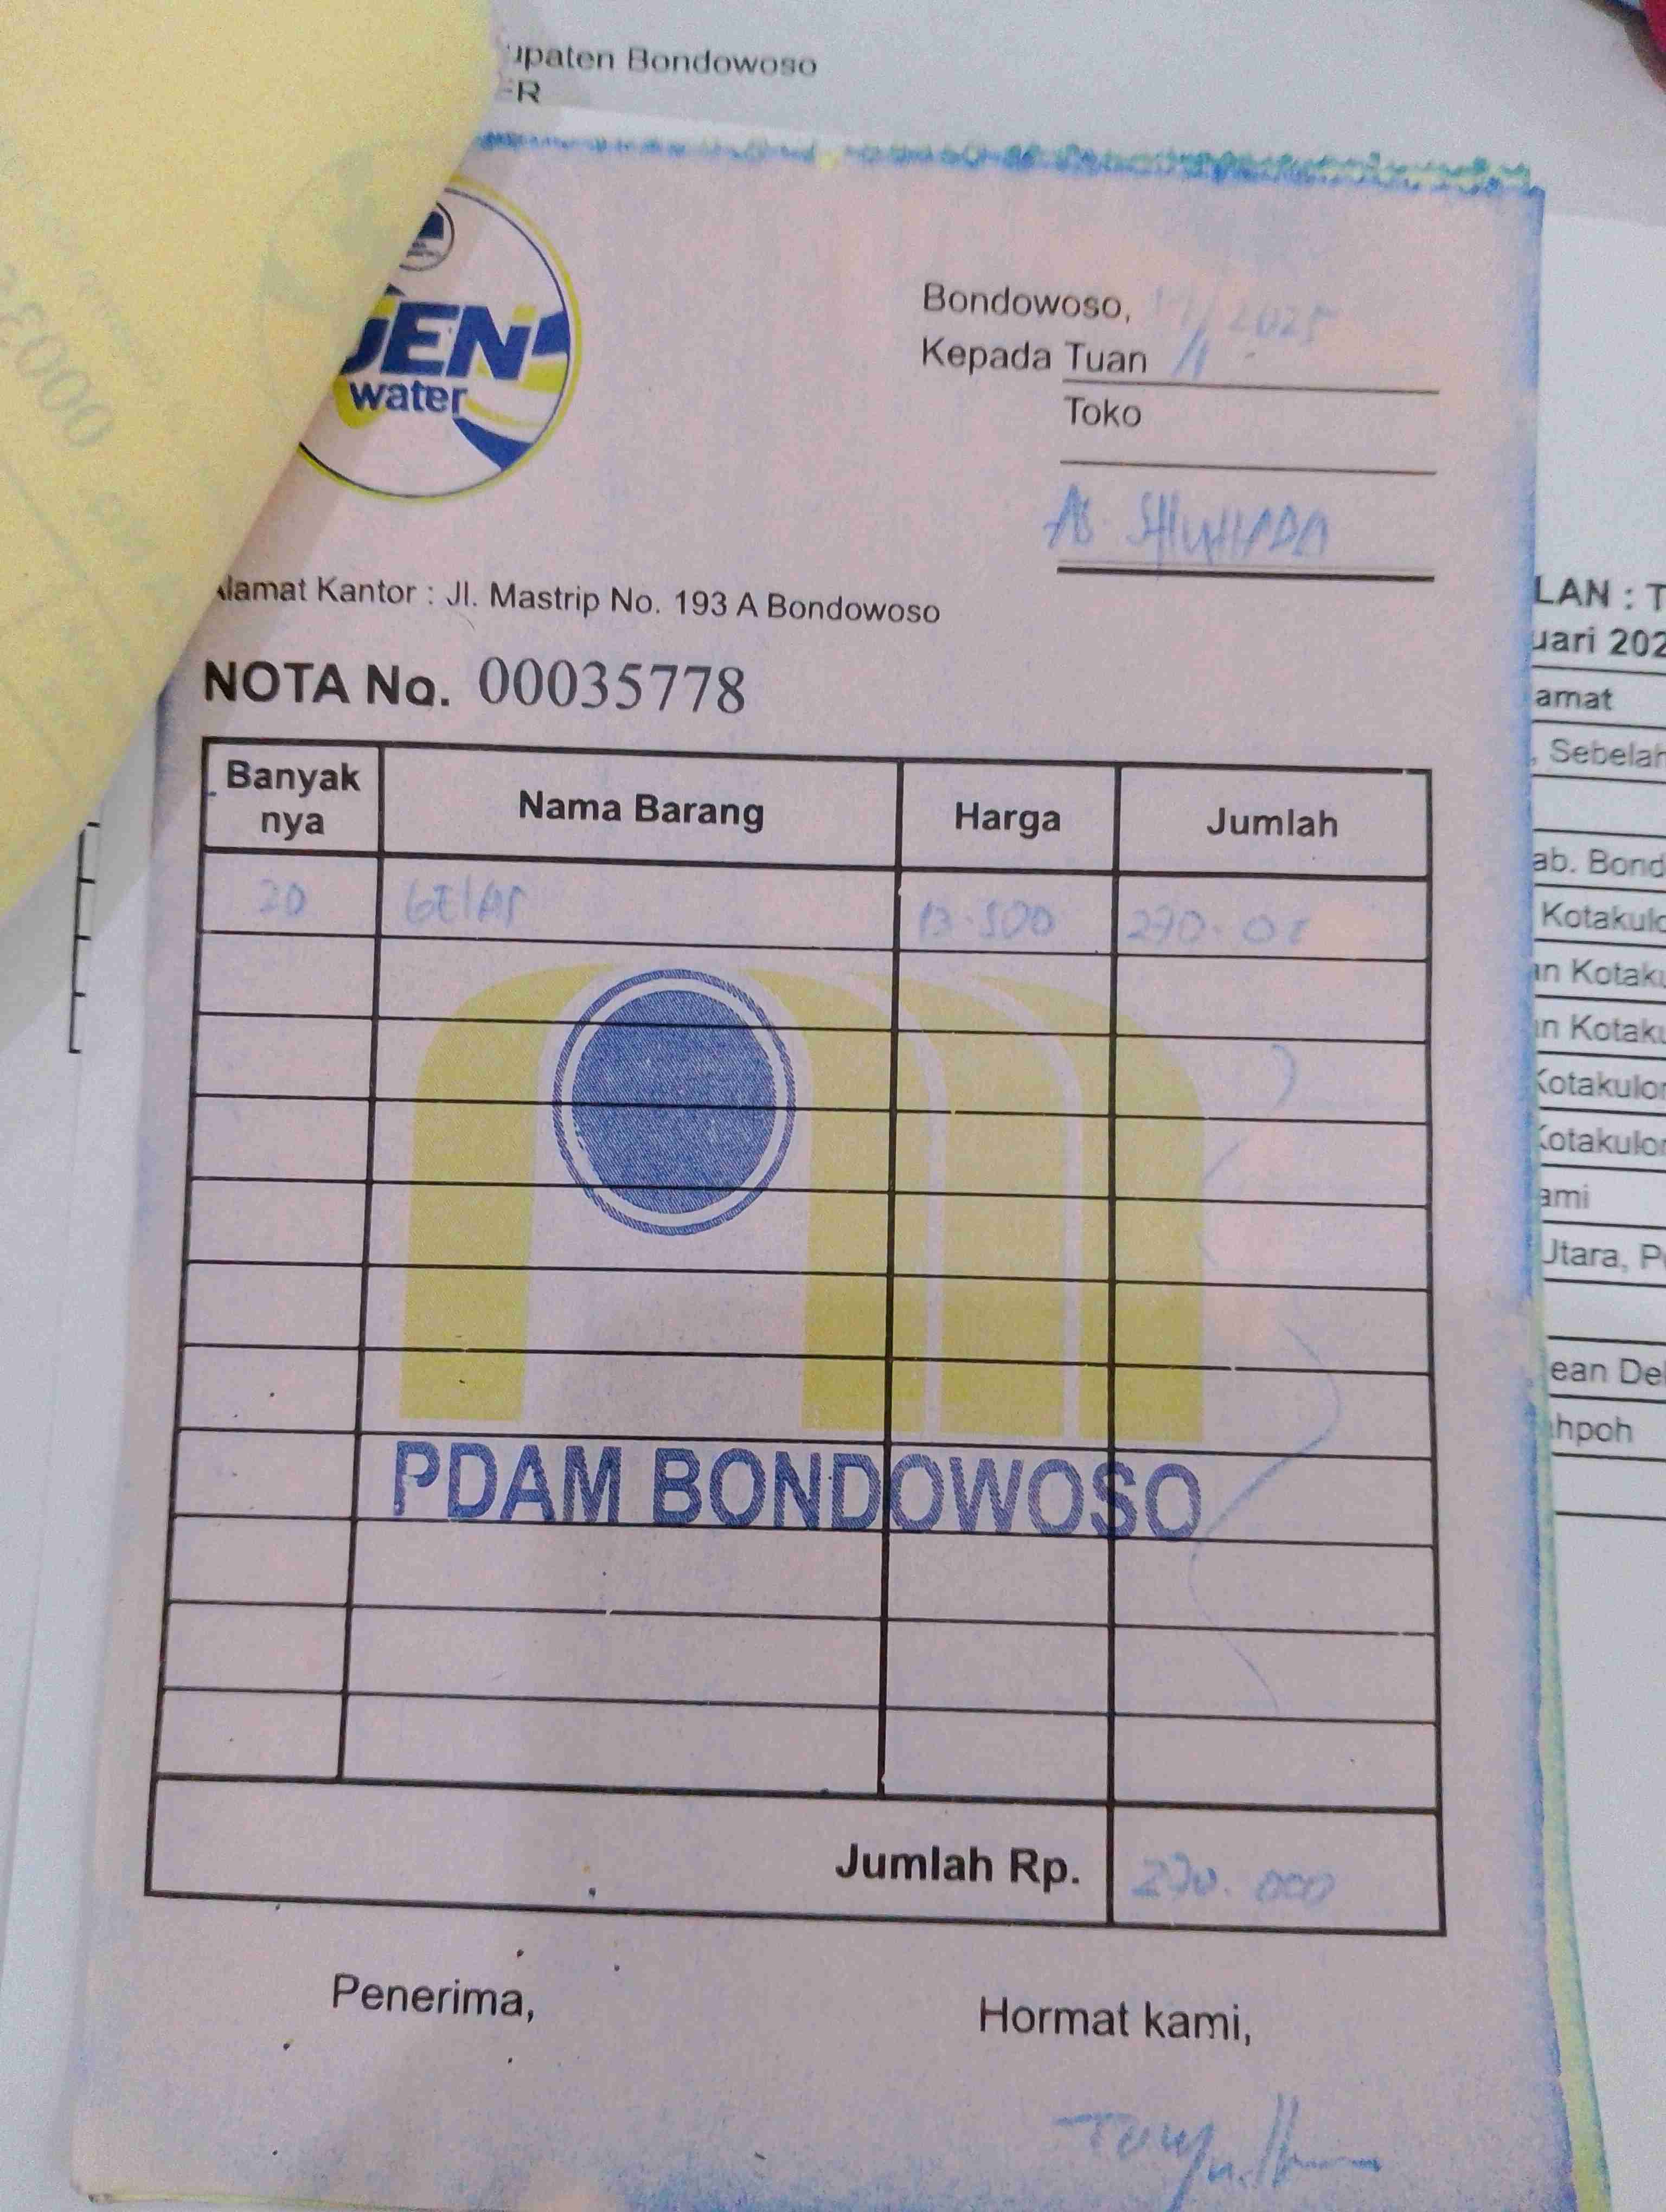 upaten Bondowoso
ER
JEN
water
Bondowoso, 2025
Kepada Tuan
Toko
AS. SHUHADA
lamat Kantor : Jl. Mastrip No. 193 A Bondowoso
NOTA No. 00035778
Banyak nya Nama Barang Harga Jumlah
20 GELAS 13.500 270.00
PDAM BONDOWOSO
Jumlah Rp. 270.000
Penerima,
Hormat kami,
LAN : T
uari 202
amat
, Sebelah
ab. Bond
Kotakulo
an Kotaku
an Kotaku
Kotakulor
Kotakulor
ami
Utara, P
ean De
hpoh